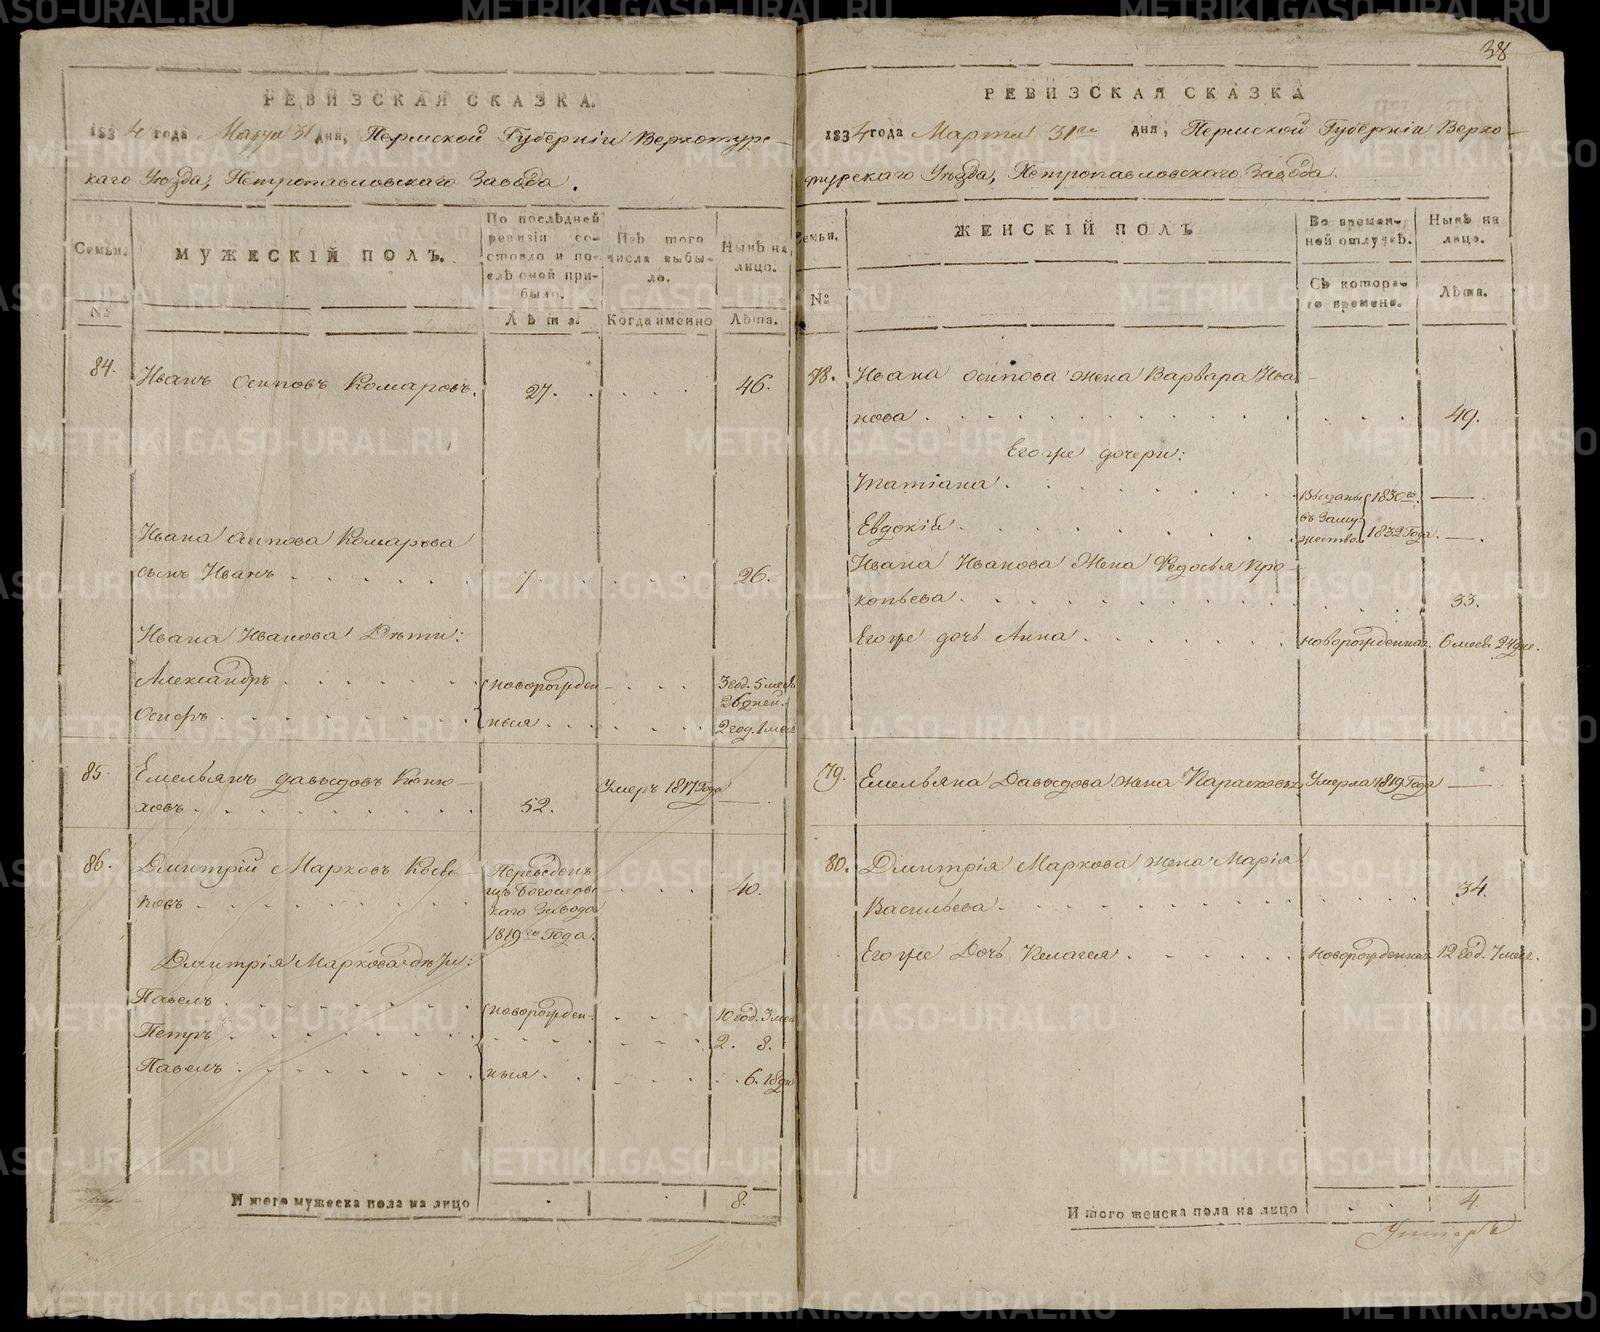 РЕВИЗСКАЯ СКАЗКА.
1834 года Марта 31 дня, Пермской Губерніи Верхотурс-
каго Уѣзда, Петропавловскаго Завода.
Семьи.
МУЖЕСКІЙ ПОЛЪ.
По послѣдней
ревизіи со-
стояло и по-
слѣ оной при-
было.
Изъ того
числа выбы-
ло.
Нынѣ на
лицо.
№
Лѣта.
Когда именно
Лѣта.
84.
Иванъ Осиповъ Комаровъ.
27.
46.
Ивана Осипова Комарова
сынъ Иванъ
7.
26.
Ивана Иванова Дѣти:
Александръ
новорожден-
3 год. 5 мес.
26 дней.
Осифъ
ныя
2 год. 1 мес.
85.
Емельянъ Давыдовъ Коню-
ховъ
52.
Умеръ 1817 Года
—
86.
Дмитрій Марковъ
ковъ
Переведенъ
изъ Богословс-
каго Завода
1819го Года.
40.
Дмитрія Маркова дѣти:
Павелъ
новорожден-
10 год. 3 мес.
Петръ
2. 8.
Павелъ
ныя
6. 18 дн.
Итого мужеска пола на лицо
8.
38
РЕВИЗСКАЯ СКАЗКА
1834 года Марта 31го дня, Пермской Губерніи Верхо-
турскаго Уѣзда, Петропавловскаго Завода.
Семьи.
ЖЕНСКІЙ ПОЛЪ
Во времен-
ной отлучкѣ.
Нынѣ на
лицо.
№
Съ котора-
го времени.
Лѣта.
78.
Ивана Осипова жена Варвара Ива-
нова
49.
Его же дочери:
Татіана
Выданы
въ Заму-
жество
1830го
—
Евдокія
1832 Года.
—
Ивана Иванова Жена Федосья Про-
копьева
33.
Его же дочь Анна
новорожденная
6 мес. 24 дне.
79.
Емельяна Давыдова жена Парасковья
Умерла 1819 Года
—
80.
Дмитрія Маркова жена Марія
Васильева
34.
Его же Дочь Пелагея
новорожденная
12 год. 7 мес.
Итого женска пола на лицо
4.
METRIKI.GASO-URAL.RU